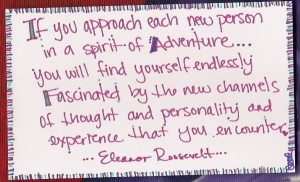 If you approach each new person
in a spirit of Adventure...
you will find yourself endlessly
Fascinated by the new channels
of thought and personality and
experience that you encounter
... Eleanor Roosevelt...